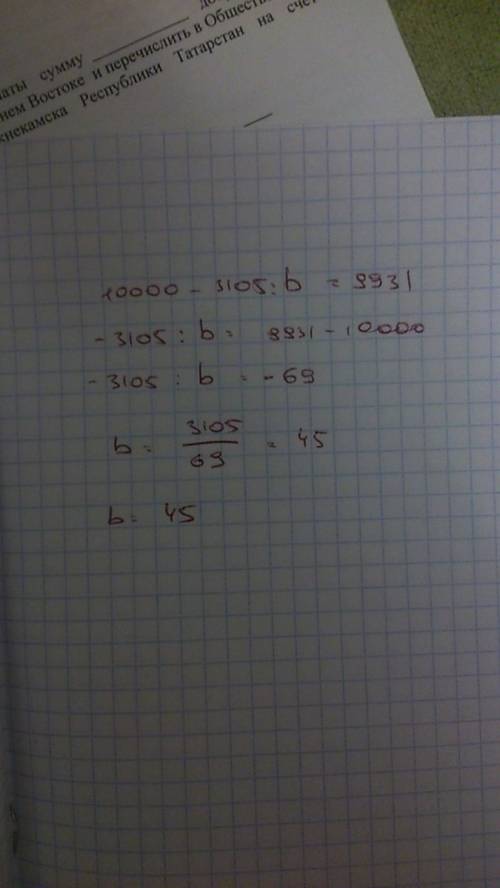 сумму ____________
Востоке и перечислить в Обществ
Республики Татарстан на счет
10000 - 3105 : b = 9931
- 3105 : b = 9931 - 10000
- 3105 : b = - 69
b = 3105/69 = 45
b = 45